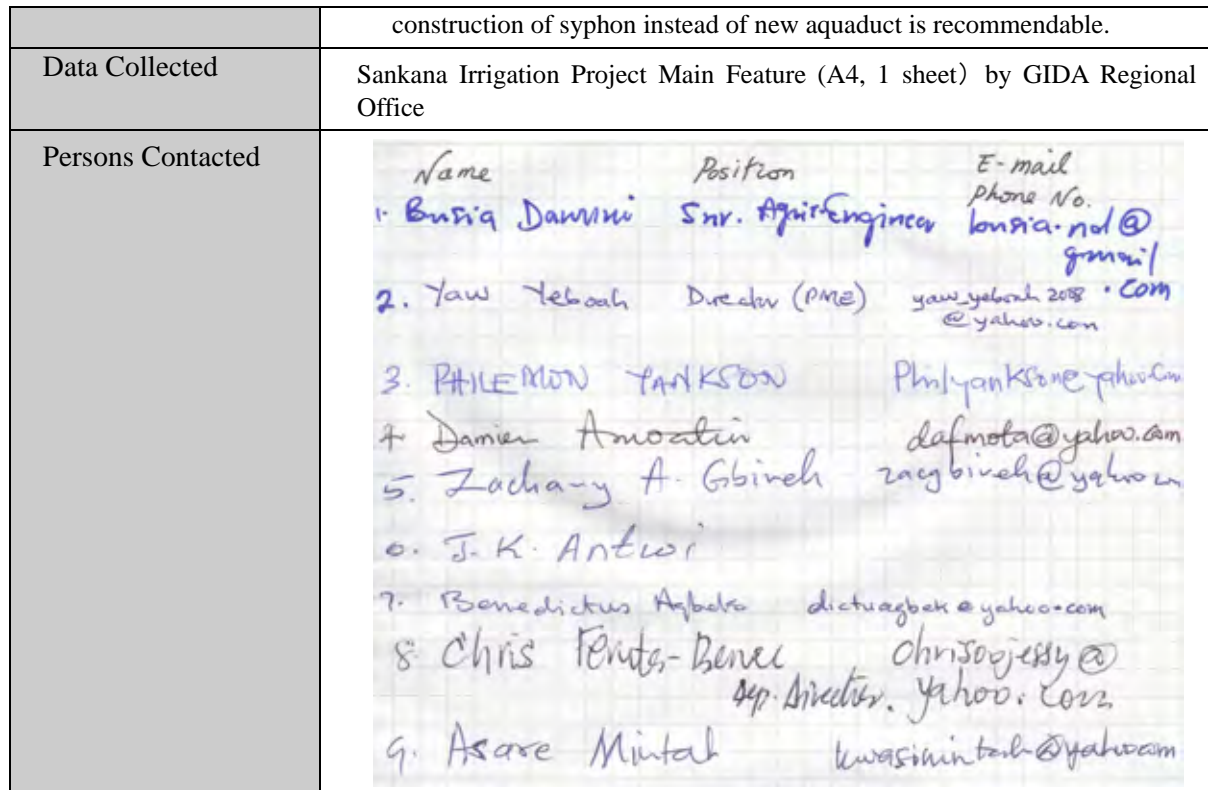 construction of syphon instead of new aquaduct is recommendable.
Data Collected
Sankana Irrigation Project Main Feature (A4, 1 sheet） by GIDA Regional
Office
Persons Contacted
Name Position E-mail
Phone No.
1. Busia Snr. Agric Engineer
gmail
.com
2. Yaw Yeboah Director (PME) yaw_yeboah 2008
@yahoo.com
3. PHILEMON YANKSON Philyankson@yahoo.com
Damien Amoatin dafmota@yahoo.com
5. Zachary A. Gbireh zacgbireh@yahoo
J. K. Antwi
7. Benedictus Agbeko dictuagbek@yahoo.com
8. Chris
Dep. Director. yahoo.com
9. Asare Mintah kwasimintah@yahoo